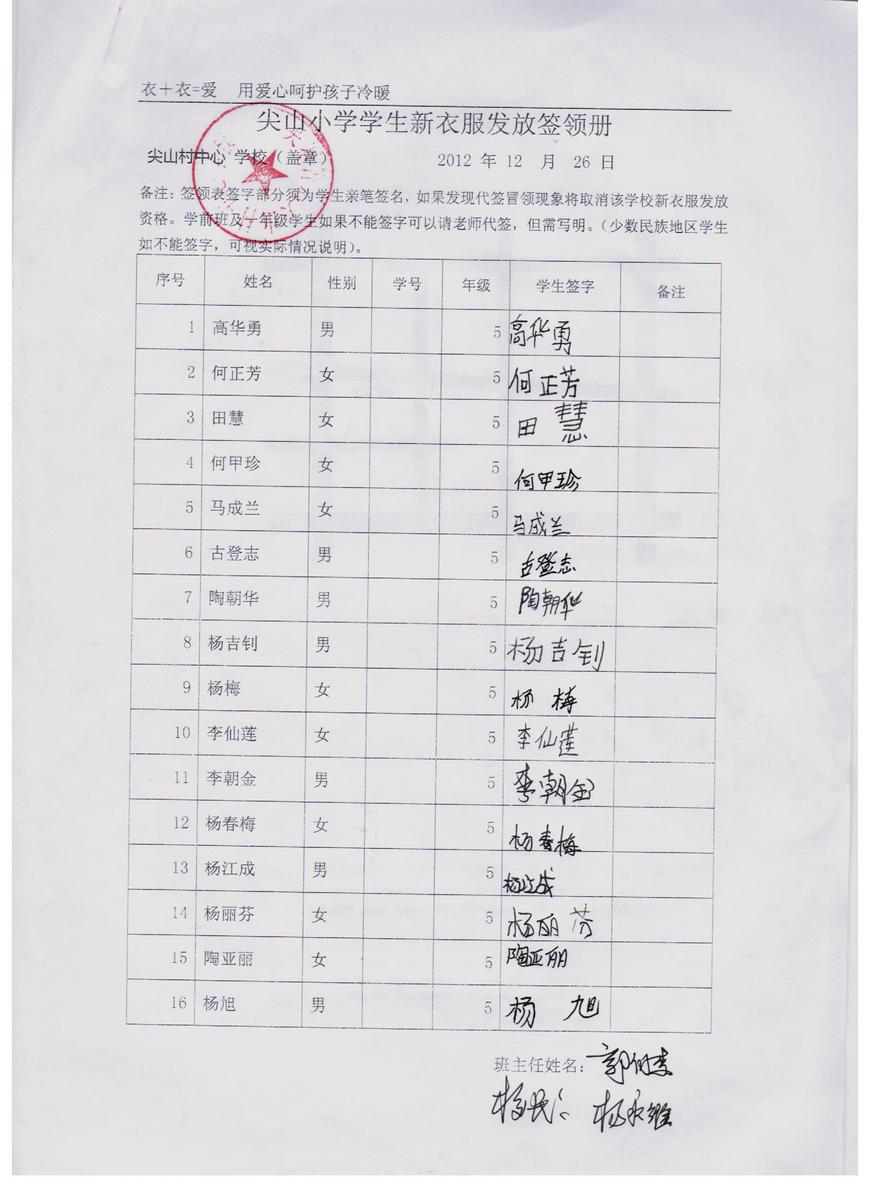 衣+衣=爱 用爱心呵护孩子冷暖
尖山小学学生新衣服发放签领册
尖山村中心 学校（盖章） 2012 年 12 月 26 日
备注：签领表签字部分须为学生亲笔签名，如果发现代签冒领现象将取消该学校新衣服发放
资格。学前班及一年级学生如果不能签字可以请老师代签，但需写明。（少数民族地区学生
如不能签字，可视实际情况说明）。
序号 姓名 性别 学号 年级 学生签字 备注
1 高华勇 男 5 高华勇
2 何正芳 女 5 何正芳
3 田慧 女 5 田慧
4 何甲珍 女 5 何甲珍
5 马成兰 女 5 马成兰
6 古登志 男 5 古登志
7 陶朝华 男 5 陶朝华
8 杨吉钊 男 5 杨吉钊
9 杨梅 女 5 杨梅
10 李仙莲 女 5 李仙莲
11 李朝金 男 5 李朝金
12 杨春梅 女 5 杨春梅
13 杨江成 男 5 杨江成
14 杨丽芬 女 5 杨丽芬
15 陶亚丽 女 5 陶亚丽
16 杨旭 男 5 杨旭
班主任姓名：